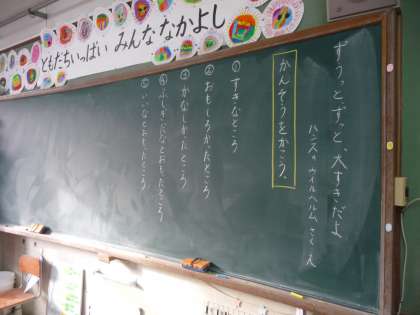 ともだちいっぱい みんななかよし
ずうっと、ずっと、大すきだよ
ハンス=ウイルヘルム さく・え
かんそうをかこう。
①すきなところ
②おもしろかったところ
③かなしかったところ
④ふしぎだなとおもったところ
⑤いいなとおもったところ